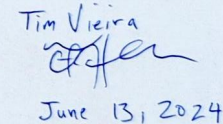 Tim Vieira
June 13, 2024